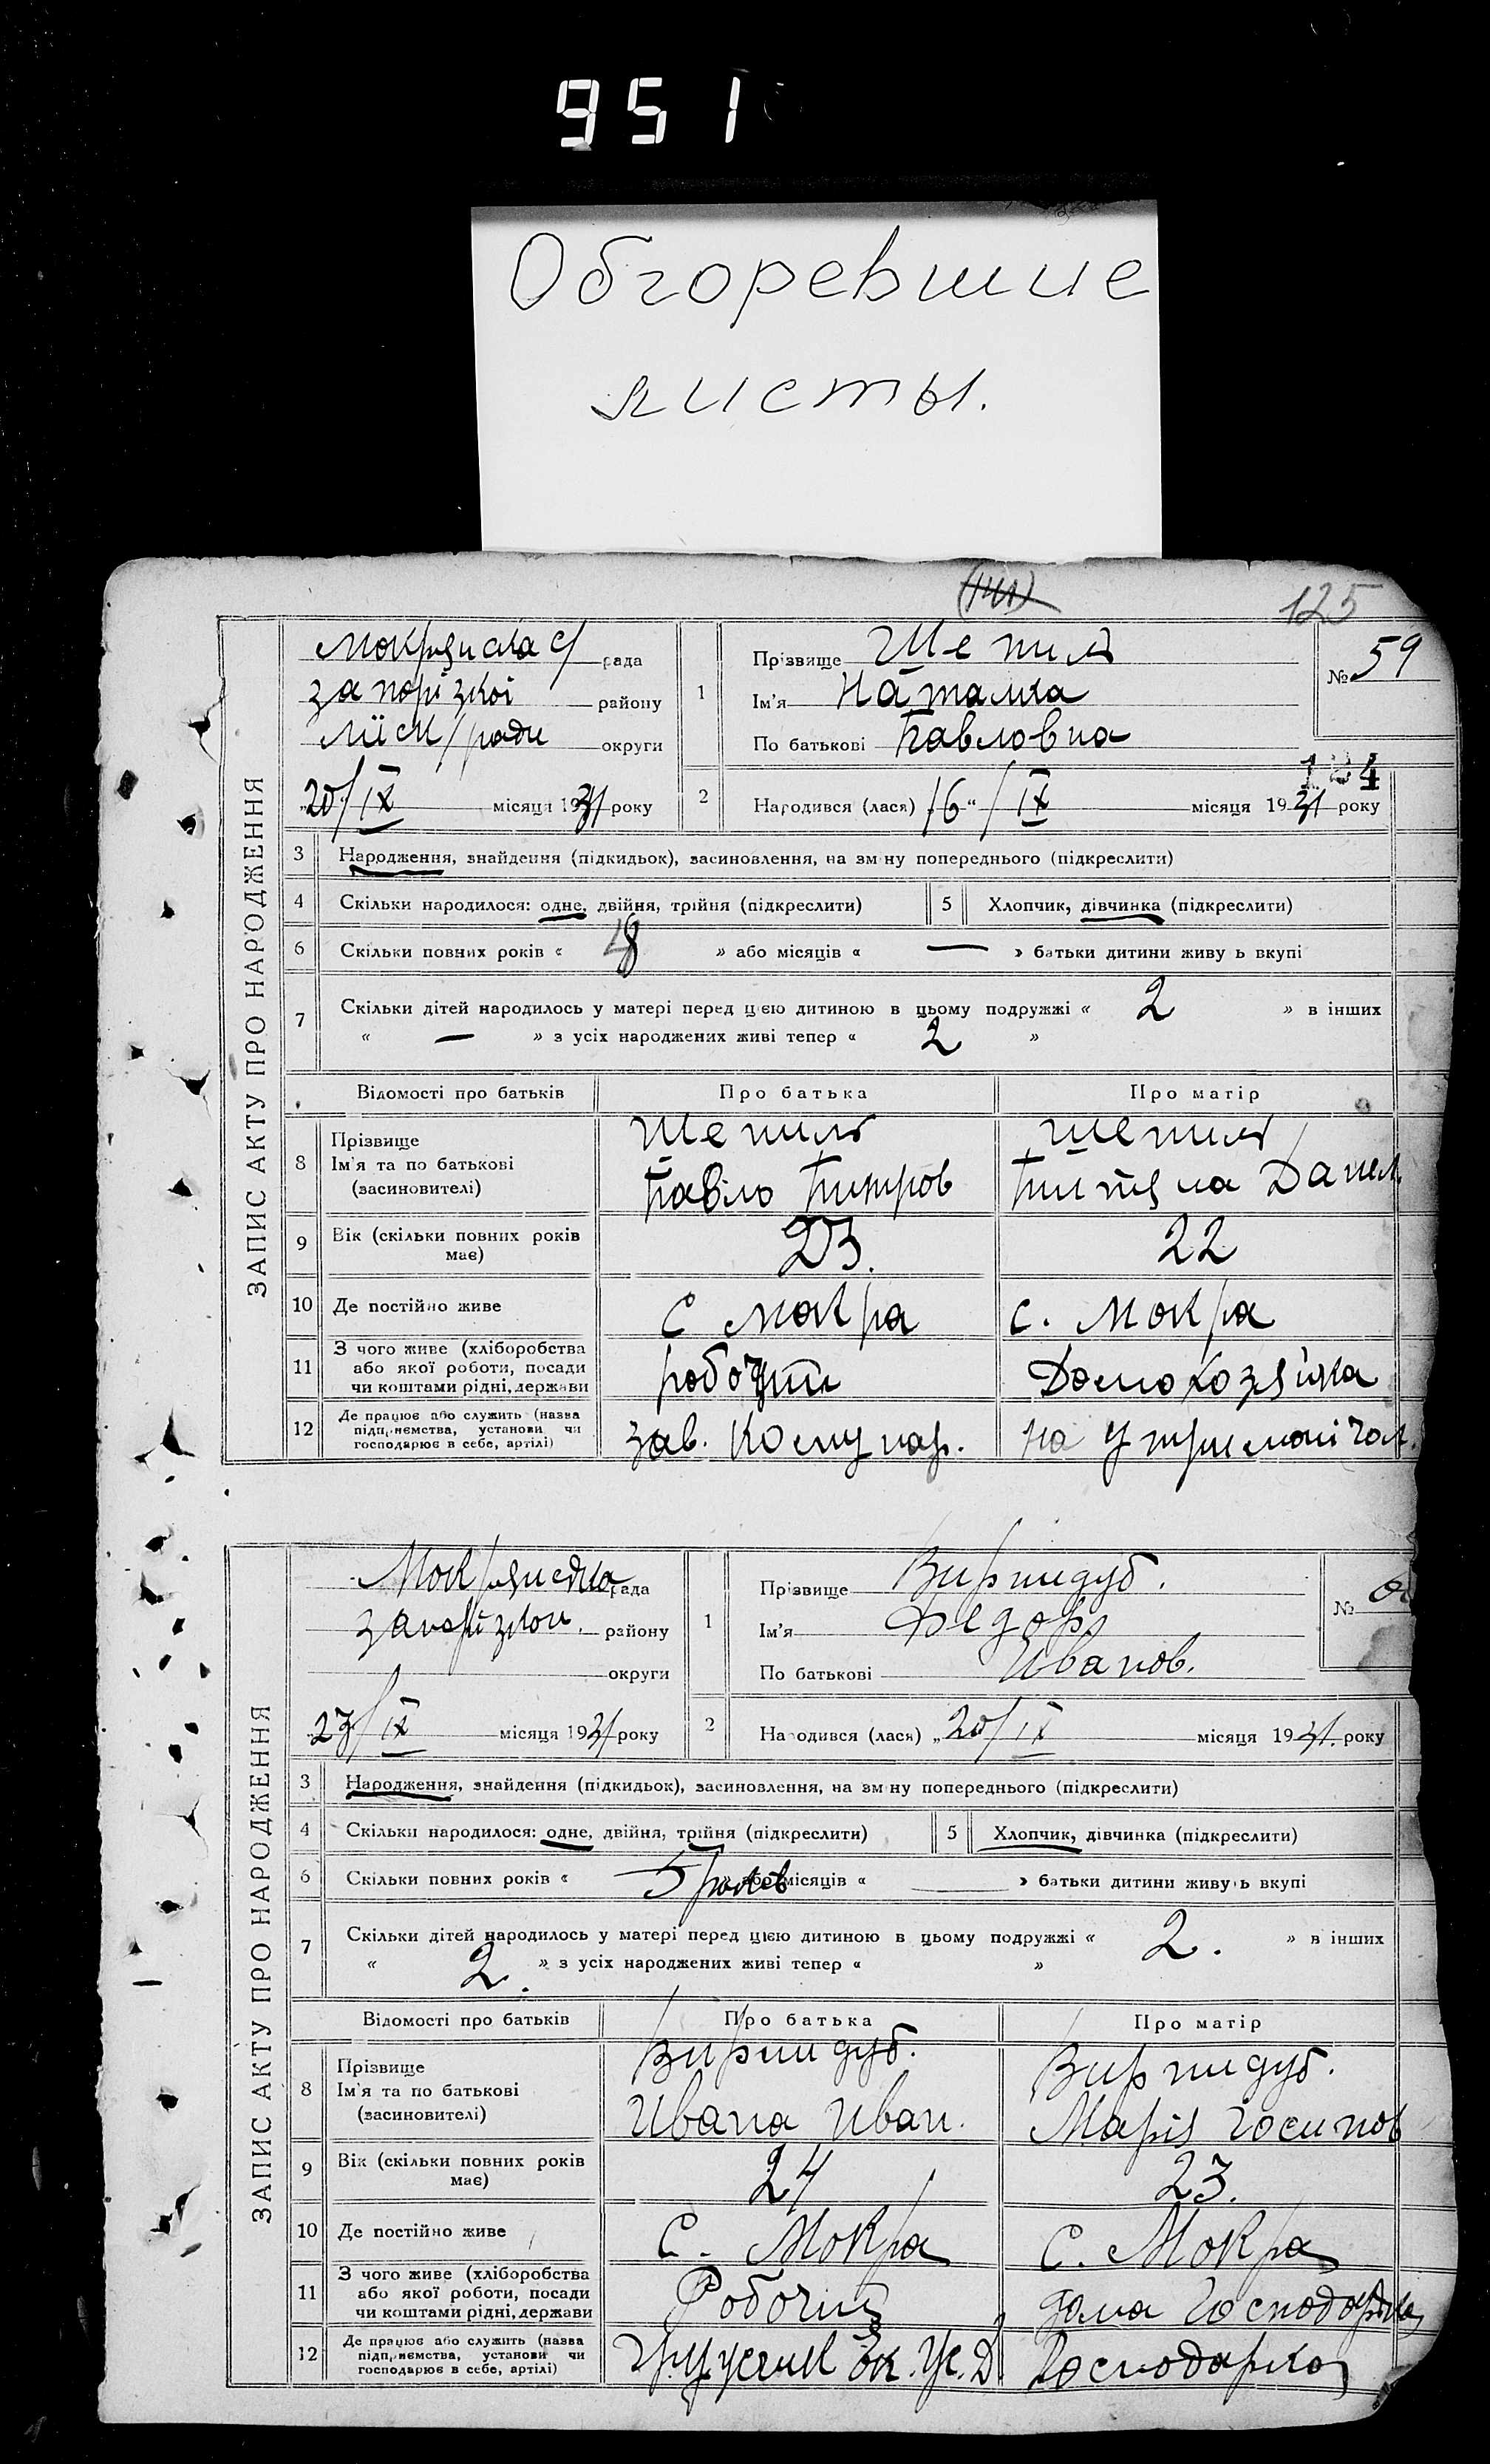 951
Обгоревшие
листы.
125
ЗАПИС АКТУ ПРО НАРОДЖЕННЯ
рада
запорізкої району
Міськ/ради округи
20/IX місяця 1931 року
1
Прізвище Шепиль
Ім'я Наталка
По батькові Павловна
№ 59
124
2 Народився (лася) „16“/IX місяця 1931 року
3 Народження, знайдення (підкидьок), засиновлення, на зміну попереднього (підкреслити)
4 Скільки народилося: одне, двійня, трійня (підкреслити) 5 Хлопчик, дівчинка (підкреслити)
6 Скільки повних років « » або місяців « — » батьки дитини живуть вкупі
7 Скільки дітей народилось у матері перед цією дитиною в цьому подружжі « 2 » в інших
« — » з усіх народжених живі тепер « 2 »
Відомості про батьків Про батька Про матір
8 Прізвище Шепиль Шепиль
Ім'я та по батькові Павло
(засиновителі)
9 Вік (скільки повних років має) 23. 22
10 Де постійно живе с Мокра с. Мокра
11 З чого живе (хліборобства
або якої роботи, посади
чи коштами рідні, держави
робочий Домохозяйка
12 Де працює або служить (назва
підприємства, установи чи
господарює в себе, артілі)
зав. Комунар. на утримані чол.
ЗАПИС АКТУ ПРО НАРОДЖЕННЯ
рада
району
округи
23/IX місяця 1931 року
1
Прізвище Вирпидуб.
Ім'я Федор
По батькові Иванов.
№
2 Народився (лася) „20/IX місяця 1931. року
3 Народження, знайдення (підкидьок), засиновлення, на зміну попереднього (підкреслити)
4 Скільки народилося: одне, двійня, трійня (підкреслити) 5 Хлопчик, дівчинка (підкреслити)
6 Скільки повних років « 5 років » або місяців « » батьки дитини живуть вкупі
7 Скільки дітей народилось у матері перед цією дитиною в цьому подружжі « 2. » в інших
« 2. » з усіх народжених живі тепер « »
Відомості про батьків Про батька Про матір
8 Прізвище Вирпидуб. Вирпидуб.
Ім'я та по батькові Ивана Иван. Марія
(засиновителі)
9 Вік (скільки повних років має) 24 23.
10 Де постійно живе С. Мокра С. Мокра
11 З чого живе (хліборобства
або якої роботи, посади
чи коштами рідні, держави
Робочий дома господарка
12 Де працює або служить (назва
підприємства, установи чи
господарює в себе, артілі)
Господарка